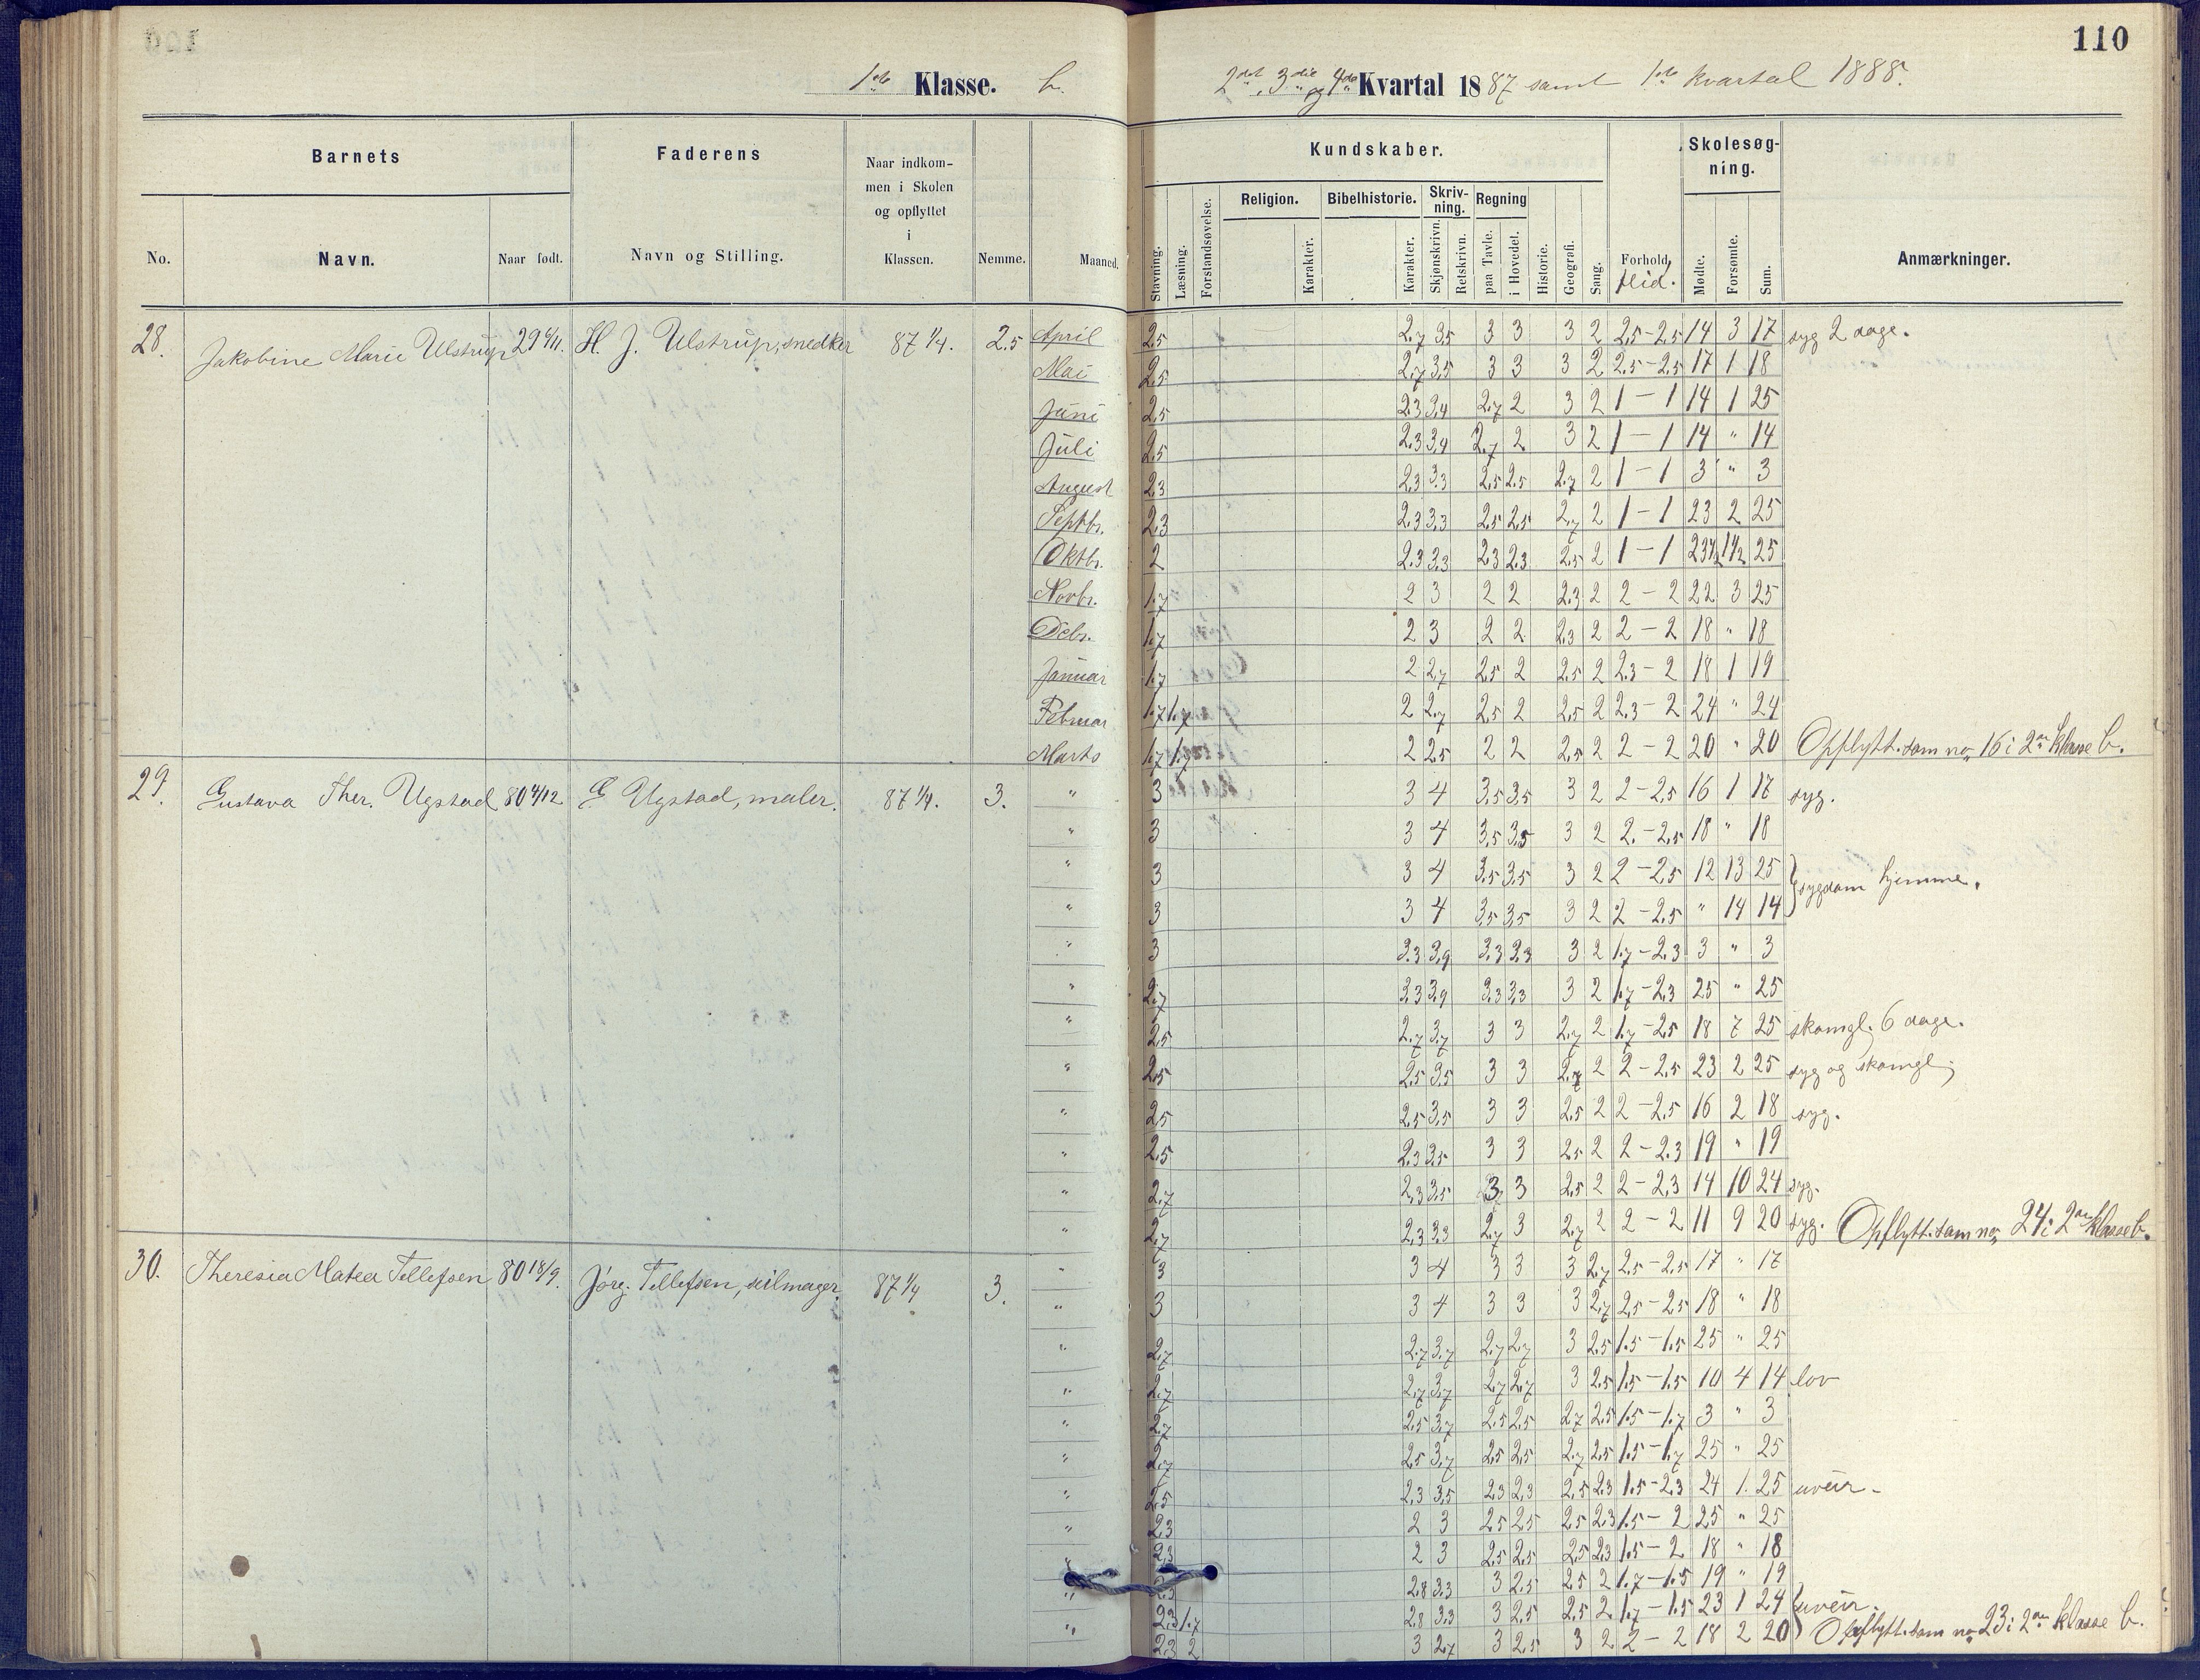 110
1ste Klasse. b.
2det, 3die og 4de Kvartal 1887 samt 1ste kvartal 1888.
Barnets
Faderens
Naar indkom-
men i Skolen
og opflyttet
i
Klassen.
Kundskaber.
Skolesøg-
ning.
Religion. Bibelhistorie. Skriv-
ning. Regning
No. Navn. Naar født. Navn og Stilling. Nemme. Maaned. Stavning. Læsning. Forstandsøvelse. Karakter. Karakter. Skjønskrivn. Retskrivn. paa Tavle. i Hovedet. Historie. Geografi. Sang. Forhold flid. Mødte. Forsømte. Sum. Anmærkninger.
28. Jakobine Marie Ulstrup 29 6/11. H. J. Ulstrup, snedker 87 1/4. 2.5 April 2.5 2.7 3.5 3 3 3 2 2.5-2.5 14 3 17 syg 2 dage.
Mai 2.5 2.7 3.5 3 3 3 2 2.5-2.5 17 1 18
Juni 2.5 2.3 3.4 2.7 2 3 2 1-1 14 1 25
Juli 2.5 2.3 3.4 2.7 2 3 2 1-1 14 " 14
August 2.3 2.3 3.3 2.5 2.5 2.7 2 1-1 3 " 3
Septbr. 2.3 2.3 3.3 2.5 2.5 2.7 2 1-1 23 2 25
Oktbr. 2 2.3 3.3 2.3 2.3 2.5 2 1-1 23½ 1½ 25
Novbr. 1.7 2 3 2 2 2.3 2 2-2 22 3 25
Debr. 1.7 2 3 2 2 2.3 2 2-2 18 " 18
Januar 1.7 2 2.7 2.5 2 2.5 2 2.3-2 18 1 19
Februar 1.7 1.7 2 2.7 2.5 2 2.5 2 2.3-2 24 " 24
Marts 1.7 1.7 2 2.5 2 2 2.5 2 2-2 20 " 20 Opflytt. som no. 16 i 2den klasse b.
29. Gustava Ther. Ugstad 80 4/12 G Ugstad, maler. 87 1/4. 3. " 3 3 4 3.5 3.5 3 2 2-2.5 16 1 17 syg.
" 3 3 4 3.5 3.5 3 2 2.-2.5 18 " 18
" 3 3 4 3.5 3.5 3 2 2-2.5 12 13 25 } sygdom hjemme.
" 3 3 4 3.5 3.5 3 2 2-2.5 " 14 14
" 3 3.3 3.9 3.3 3.3 3 2 1.7-2.3 3 " 3
" 2.7 3.3 3.9 3.3 3.3 3 2 1.7-2.3 25 " 25
" 2.5 2.7 3.7 3 3 2.7 2 1.7-2.5 18 7 25 skomgl. 6 dage.
" 2.5 2.5 3.5 3 3 2.7 2 2-2.5 23 2 25 syg og skomgl.
" 2.5 2.5 3.5 3 3 2.5 2 2-2.5 16 2 18 syg.
" 2.5 2.3 3.5 3 3 2.5 2 2-2.3 19 " 19
" 2.7 2.3 3.5 3 3 2.5 2 2-2.3 14 10 24 syg.
" 2.7 2.3 3.3 2.7 3 2.7 2 2-2 11 9 20 syg. Opflytt. som no. 24 i 2den klasse b.
30. Theresia Matea Tellefsen 80 18/9. Jörg. Tellefsen, seilmager. 87 1/4 3. " 3 3 4 3 3 3 2.7 2.5-2.5 17 " 17
" 3 3 4 3 3 3 2.7 2.5-2.5 18 " 18
" 2.7 2.7 3.7 2.7 2.7 3 2.5 1.5-1.5 25 " 25
" 2.7 2.7 3.7 2.7 2.7 3 2.5 1.5-1.5 10 4 14 lov
" 2.7 2.5 3.7 2.5 2.5 2.7 2.5 1.5-1.7 3 " 3
" 2.7 2.5 3.7 2.5 2.5 2.7 2.5 1.5-1.7 25 " 25
" 2.5 2.3 3.5 2.3 2.3 2.5 2.3 1.5-2.3 24 1 25 uveir.
" 2.3 2 3 2.5 2.5 2.5 2.3 1.5-2 25 " 25
" 2.3 2 3 2.5 2.5 2.5 2.3 1.5-2 18 " 18
" 2.3 2.8 3.3 3 2.5 2.5 2 1.7-1.5 19 " 19
" 2.3 1.7 2.8 3.3 3 2.5 2.5 2 1.7-1.5 23 1 24 uveir.
" 2.3 2 3 2.7 3 2.5 3 2 2-2 18 2 20 Opflytt. som no. 23 i 2den klasse b.